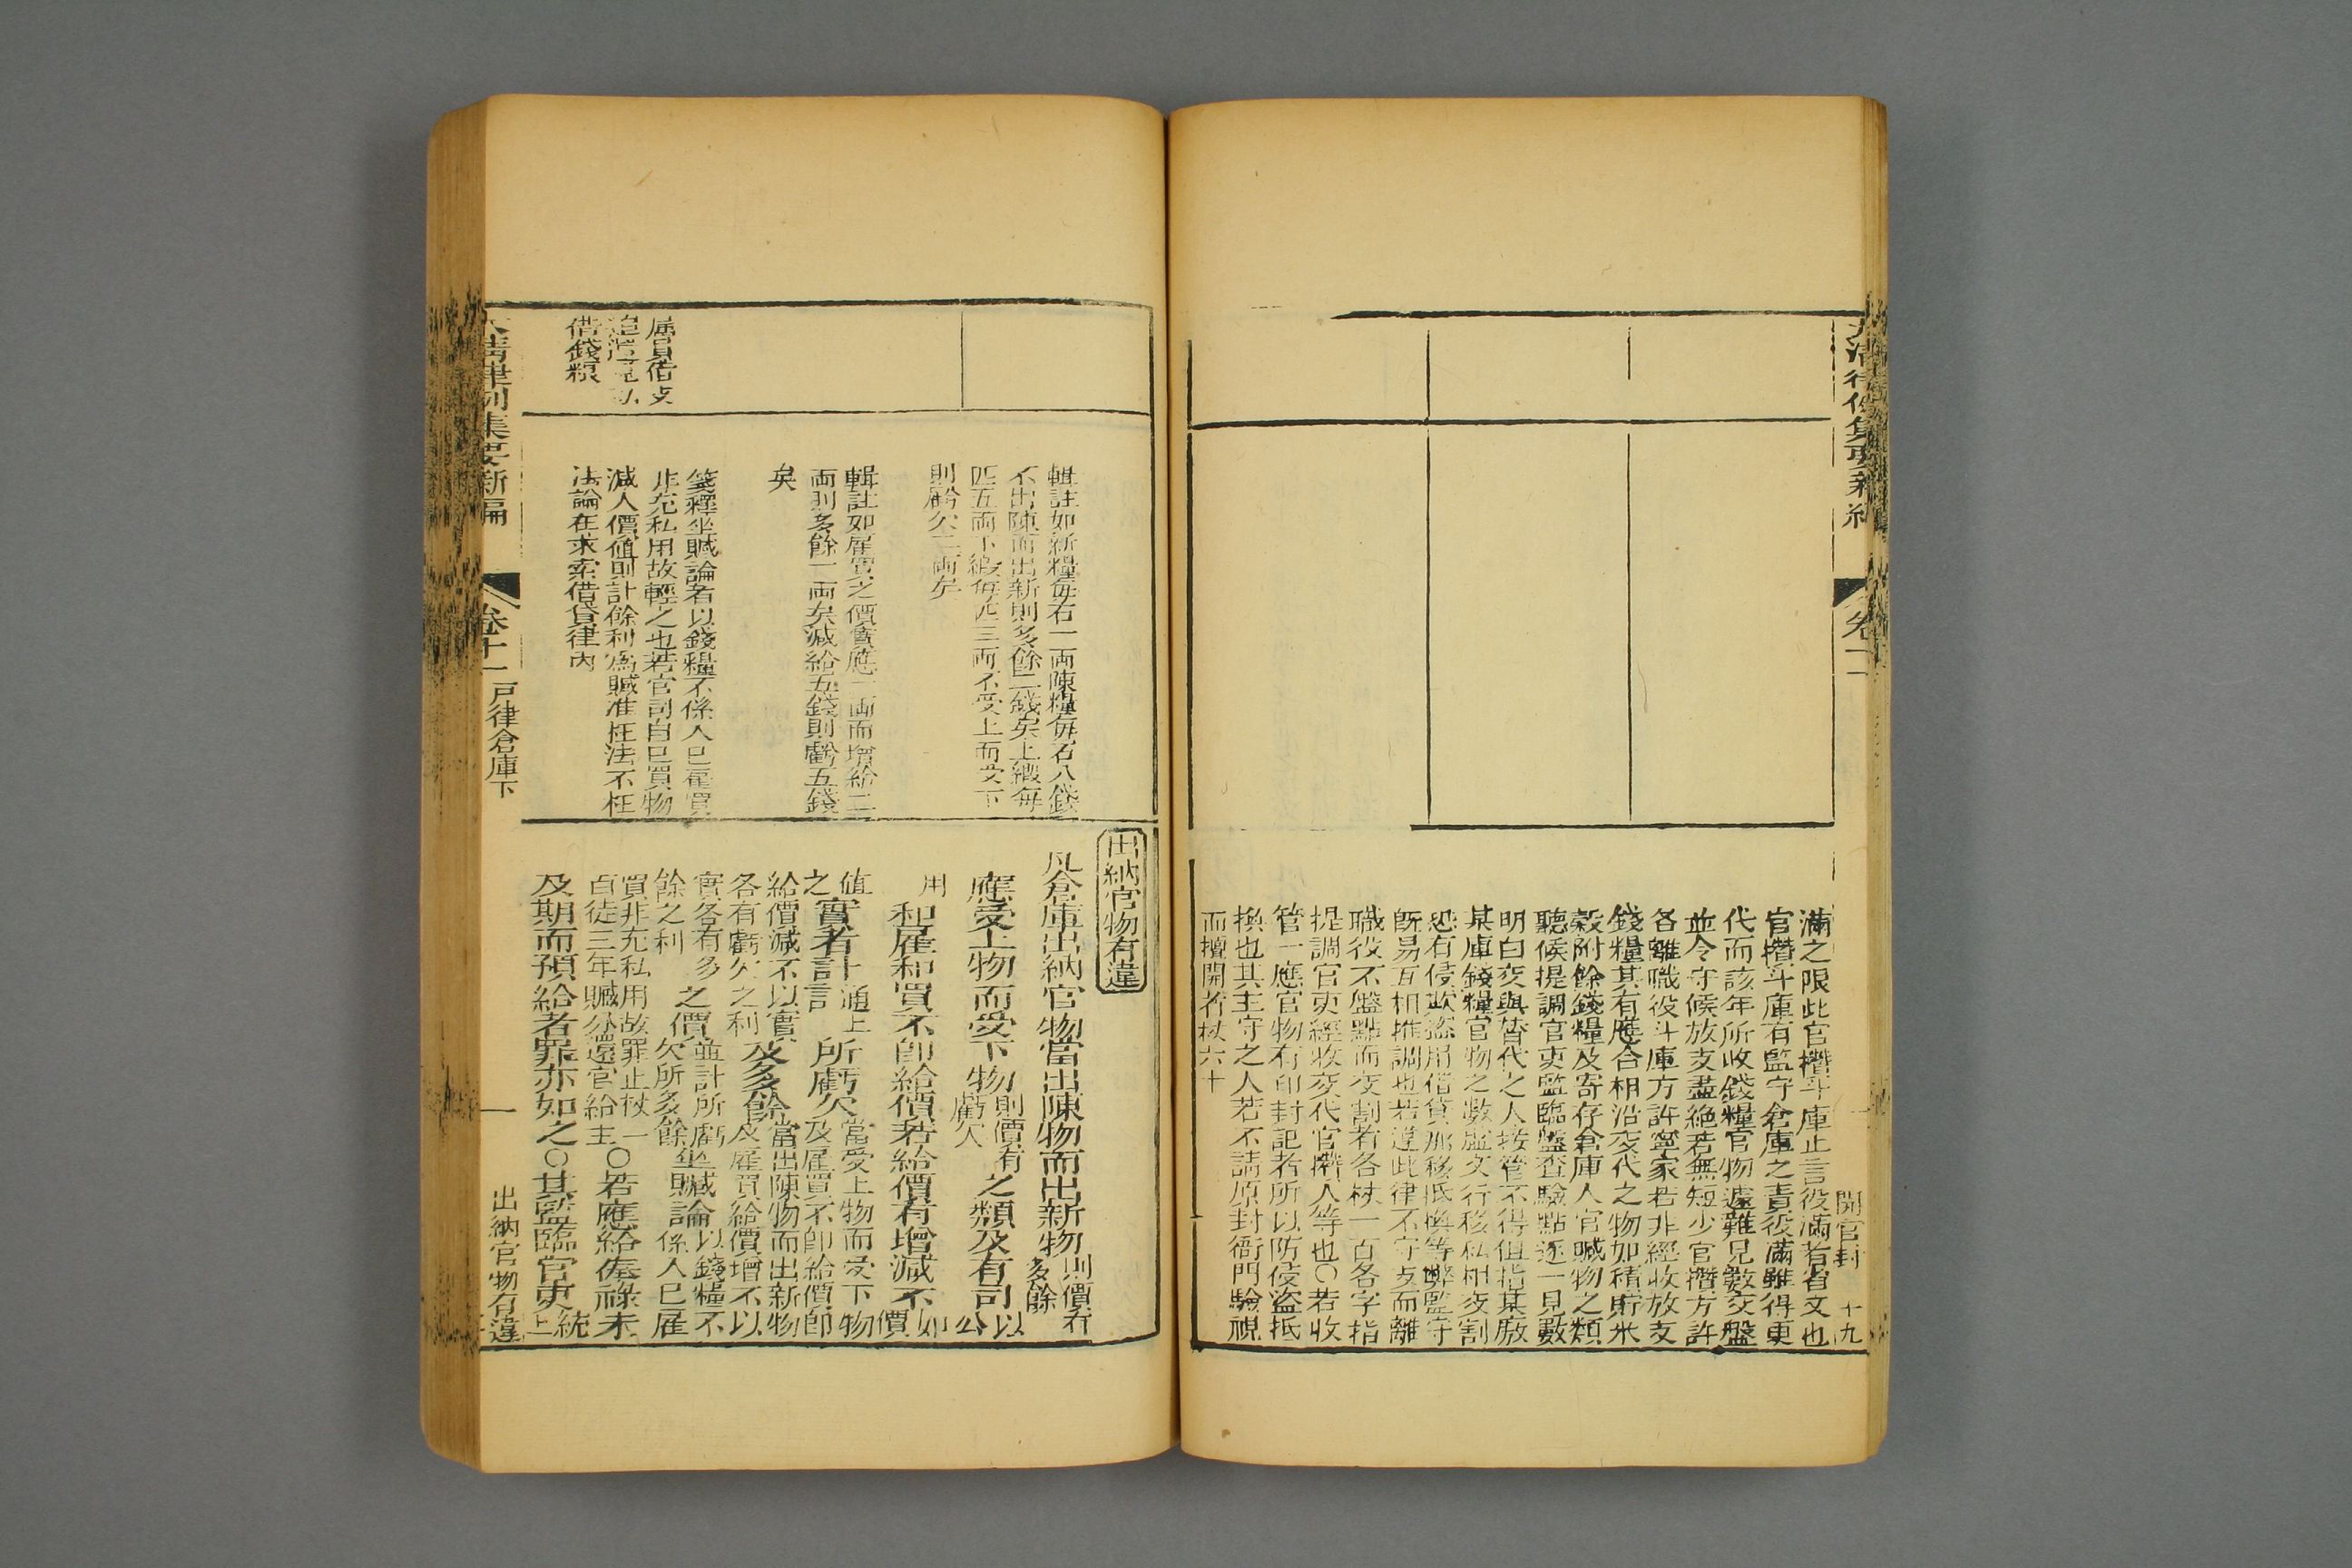 大清律例集要新編
卷十一
開官封
十九
滿之限此官攢斗庫止言役滿者省文也
官攢斗庫有監守倉庫之責役滿雖得更
代而該年所收錢糧官物遽難見數交盤
並令守候放支盡絕若無短少官攢方許
各離職役斗庫方許寧家若非經收放支
錢糧其有應合相沿交代之物如積貯米
穀附餘錢糧及寄存倉庫人官贓物之類
聽候提調官吏監臨盤查驗點逐一見數
明白交與替代之人接管不得但指某廒
某庫錢糧官物之數虛文行移私相交割
恐有侵欺盜用借貸那移抵換等弊監守
旣易互相推調也若違此律不守支而離
職役不盤點而交割者各杖一百各字指
提調官吏經收交代官攢人等也○若收
管一應官物有印封記者所以防侵盜抵
換也其主守之人若不請原封衙門驗視
而擅開者杖六十
輯註如新糧每石一兩陳糧每石八錢
不出陳而出新則多餘二錢矣上緞每
匹五兩下緞每匹三兩不受上而受下
則虧欠二兩矣
輯註如雇買之價實應一兩而增給二
兩則多餘一兩矣減給五錢則虧五錢
矣
箋釋坐贓論者以錢糧不係人已雇買
非充私用故輕之也若官司自已買物
減人價值則計餘利爲贓准枉法不枉
法論在求索借貸律內
屬員借支
借錢糧
出納官物有違
凡倉庫出納官物當出陳物而出新物則價有多餘
應受上物而受下物則價有虧欠之類及有司以公
用和雇和買不卽給價若給價有增減不如價
值之實者計通上所虧欠當受上物而受下物及雇買不卽給價卽
給價減不以實各有虧欠之利及多餘當出陳物而出新物及雇買給價增不以
實各有多餘之利之價並計所虧欠所多餘坐贓論以錢糧不係人已雇
買非充私用故罪止杖一百徒三年贓分還官給主○若應給俸祿未
及期而預給者罪亦如之○其監臨官吏統上
大清律例集要新編
卷十一
戶律倉庫下
一
出納官物有違